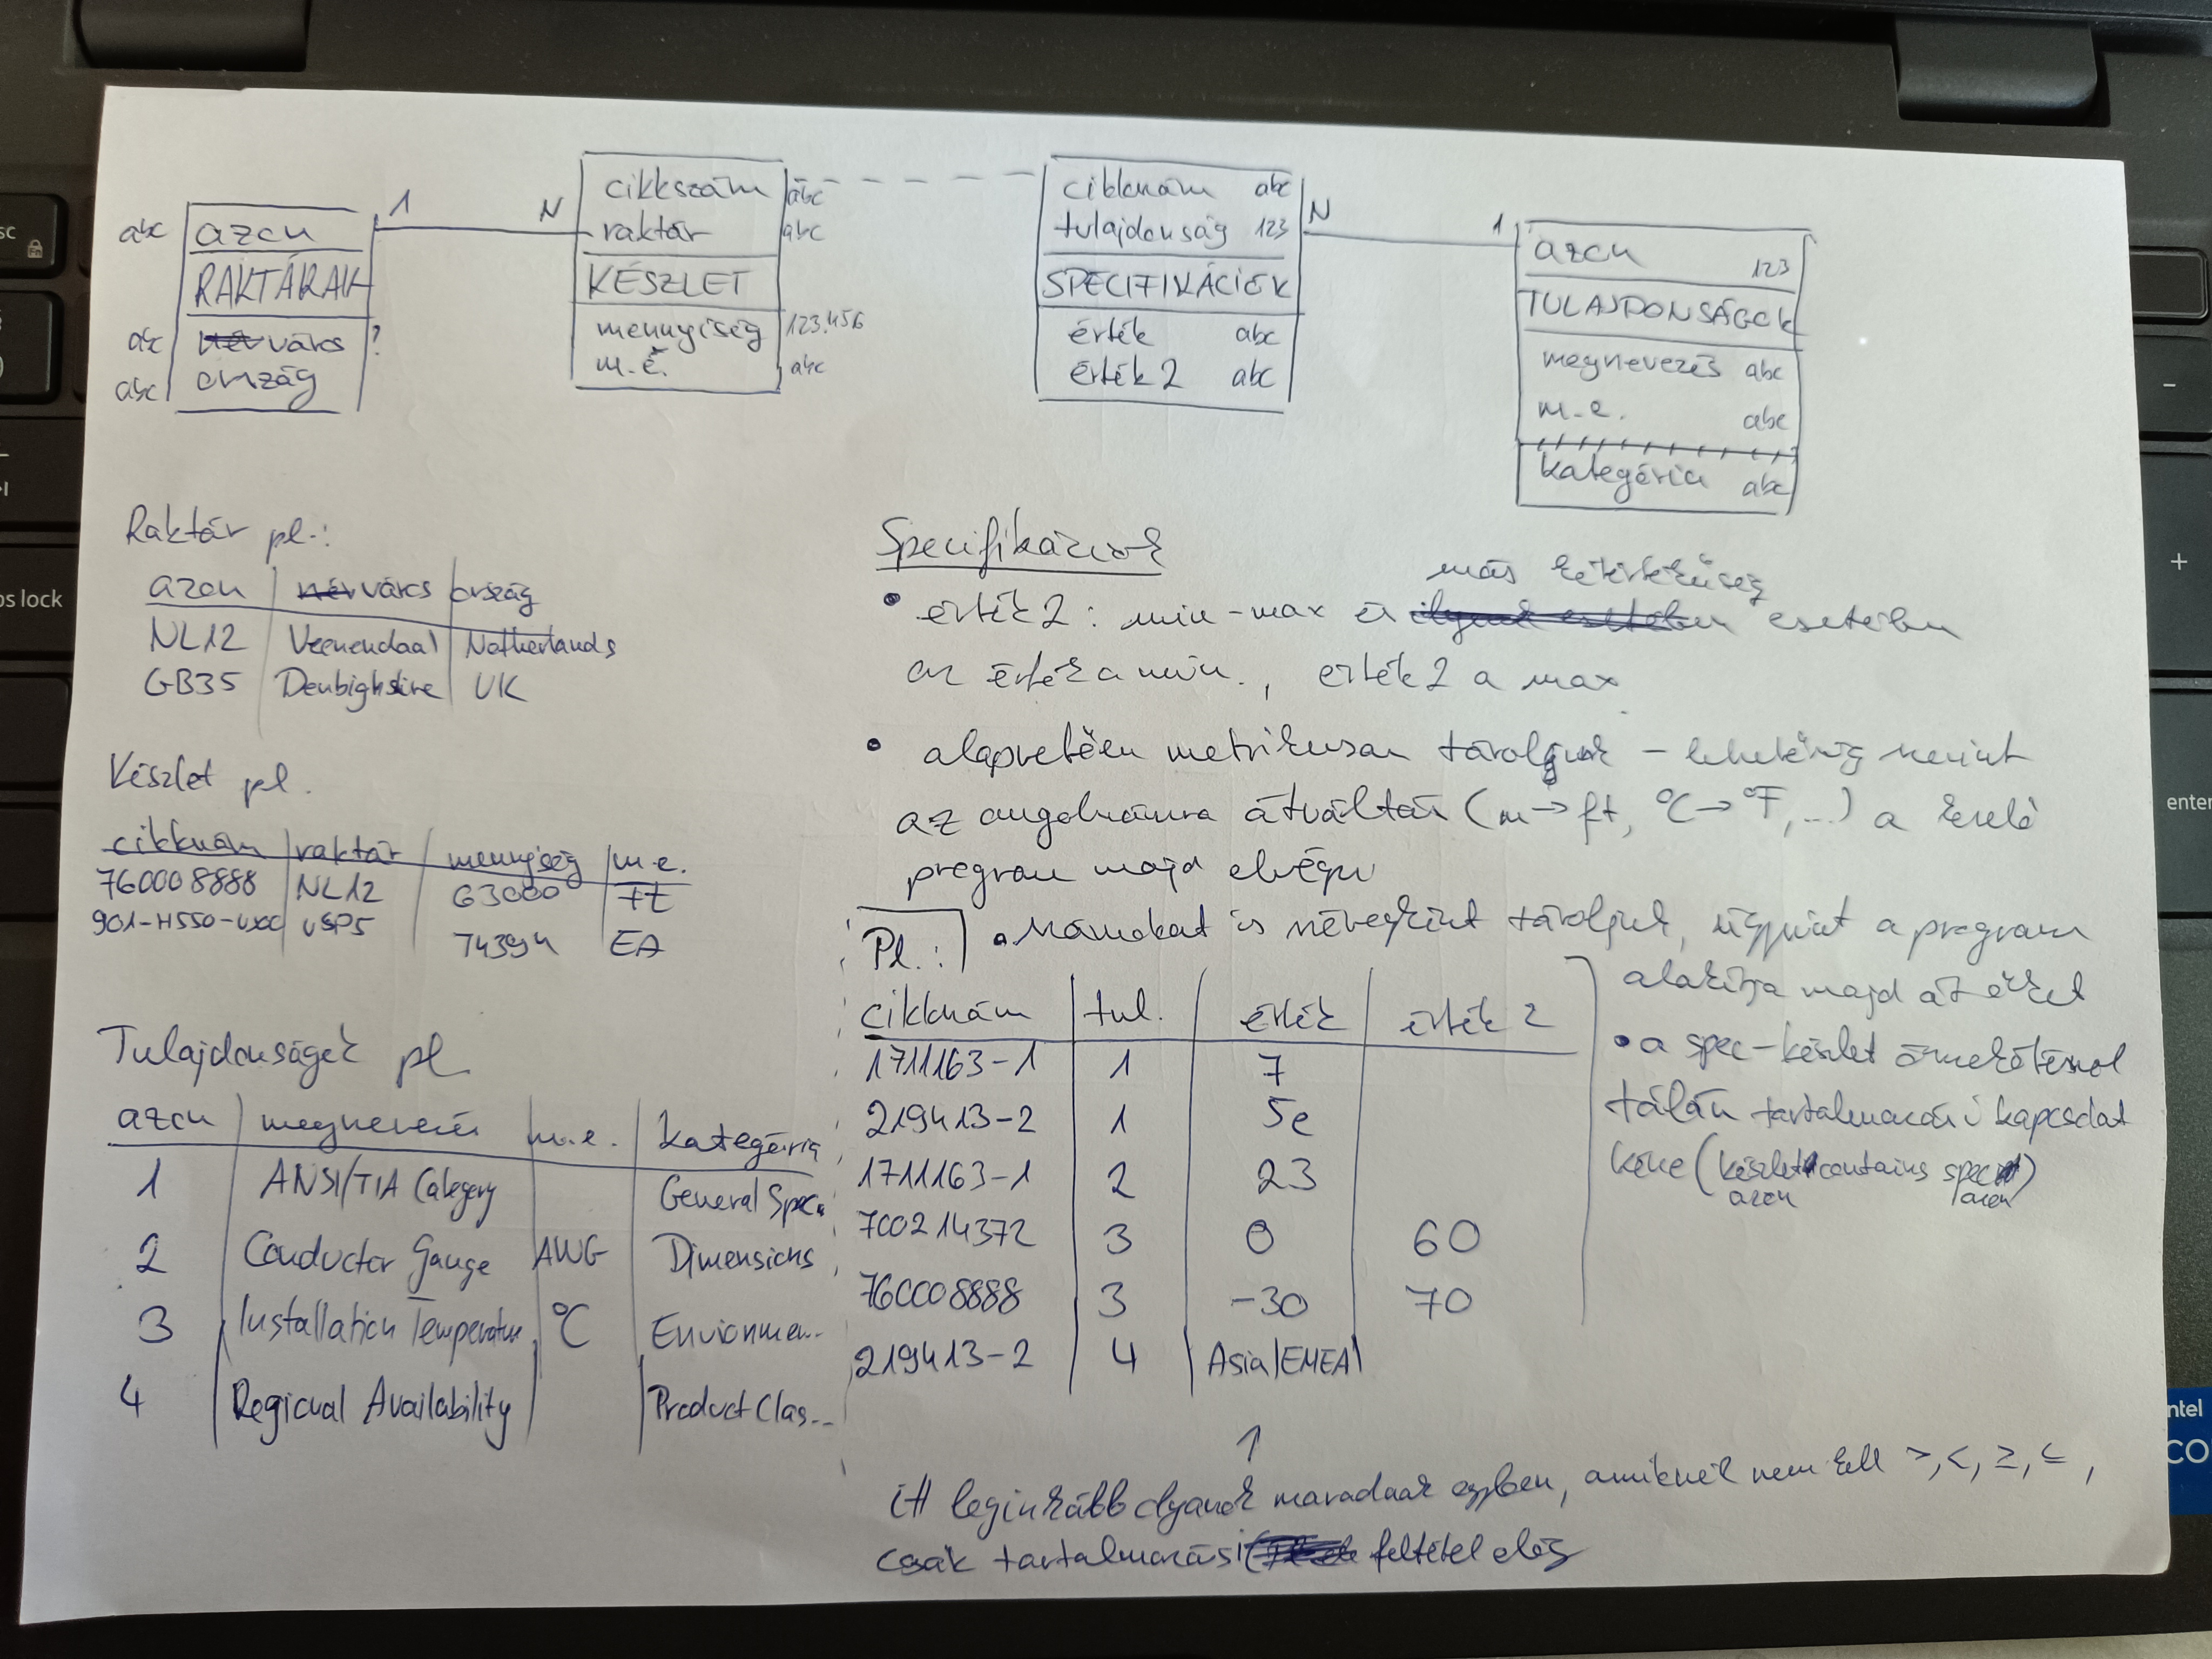 abc azon
RAKTÁRAK
abc város ?
abc ország
1 N
cikkszám abc
raktár abc
KÉSZLET
mennyiség 123.456
m.e. abc
cikkszám abc
tulajdonság 123
SPECIFIKÁCIÓK
érték abc
érték 2 abc
N 1
azon 123
TULAJDONSÁGOK
megnevezés abc
m.e. abc
kategória abc
Raktár pl.:
azon város ország
NL12 Veenendaal Netherlands
GB35 Denbighsire UK
Készlet pl.
cikkszám raktár mennyiség m.e.
760008888 NL12 63000 FT
901-H550-uxx USP5 74394 EA
Tulajdonságok pl
azon megnevezés m.e. kategória
1 ANSI/TIA Category General Spec.
2 Conductor Gauge AWG Dimensions
3 Installation Temperature °C Envionmen..
4 Regional Availability Product Clas...
Specifikációk
más kétértékűség
• érték 2: min-max és esetében
az érték a min., érték 2 a max
• alapvetően metrikusan tároljuk - lehetőség szerint
az angolszászra átváltás (m→ft, °C→°F, ...) a kezelő
program majd elvégzi
Pl.: • számokat is szövegként tároljuk, úgyis a program
alakítja majd át őket
• a spec-készlet összekötésnél
talán tartalmazási kapcsolat
kéne (készlet contains spec)
azon azon
cikkszám tul. érték érték 2
1711163-1 1 7
219413-2 1 5e
1711163-1 2 23
700214372 3 0 60
760008888 3 -30 70
219413-2 4 Asia|EMEA|
↑
itt leginkább olyanok maradnak egyben, amiknél nem kell >, <, ≥, ≤,
csak tartalmazási feltétel elég
esc
caps lock
enter
-
+
intel
CO